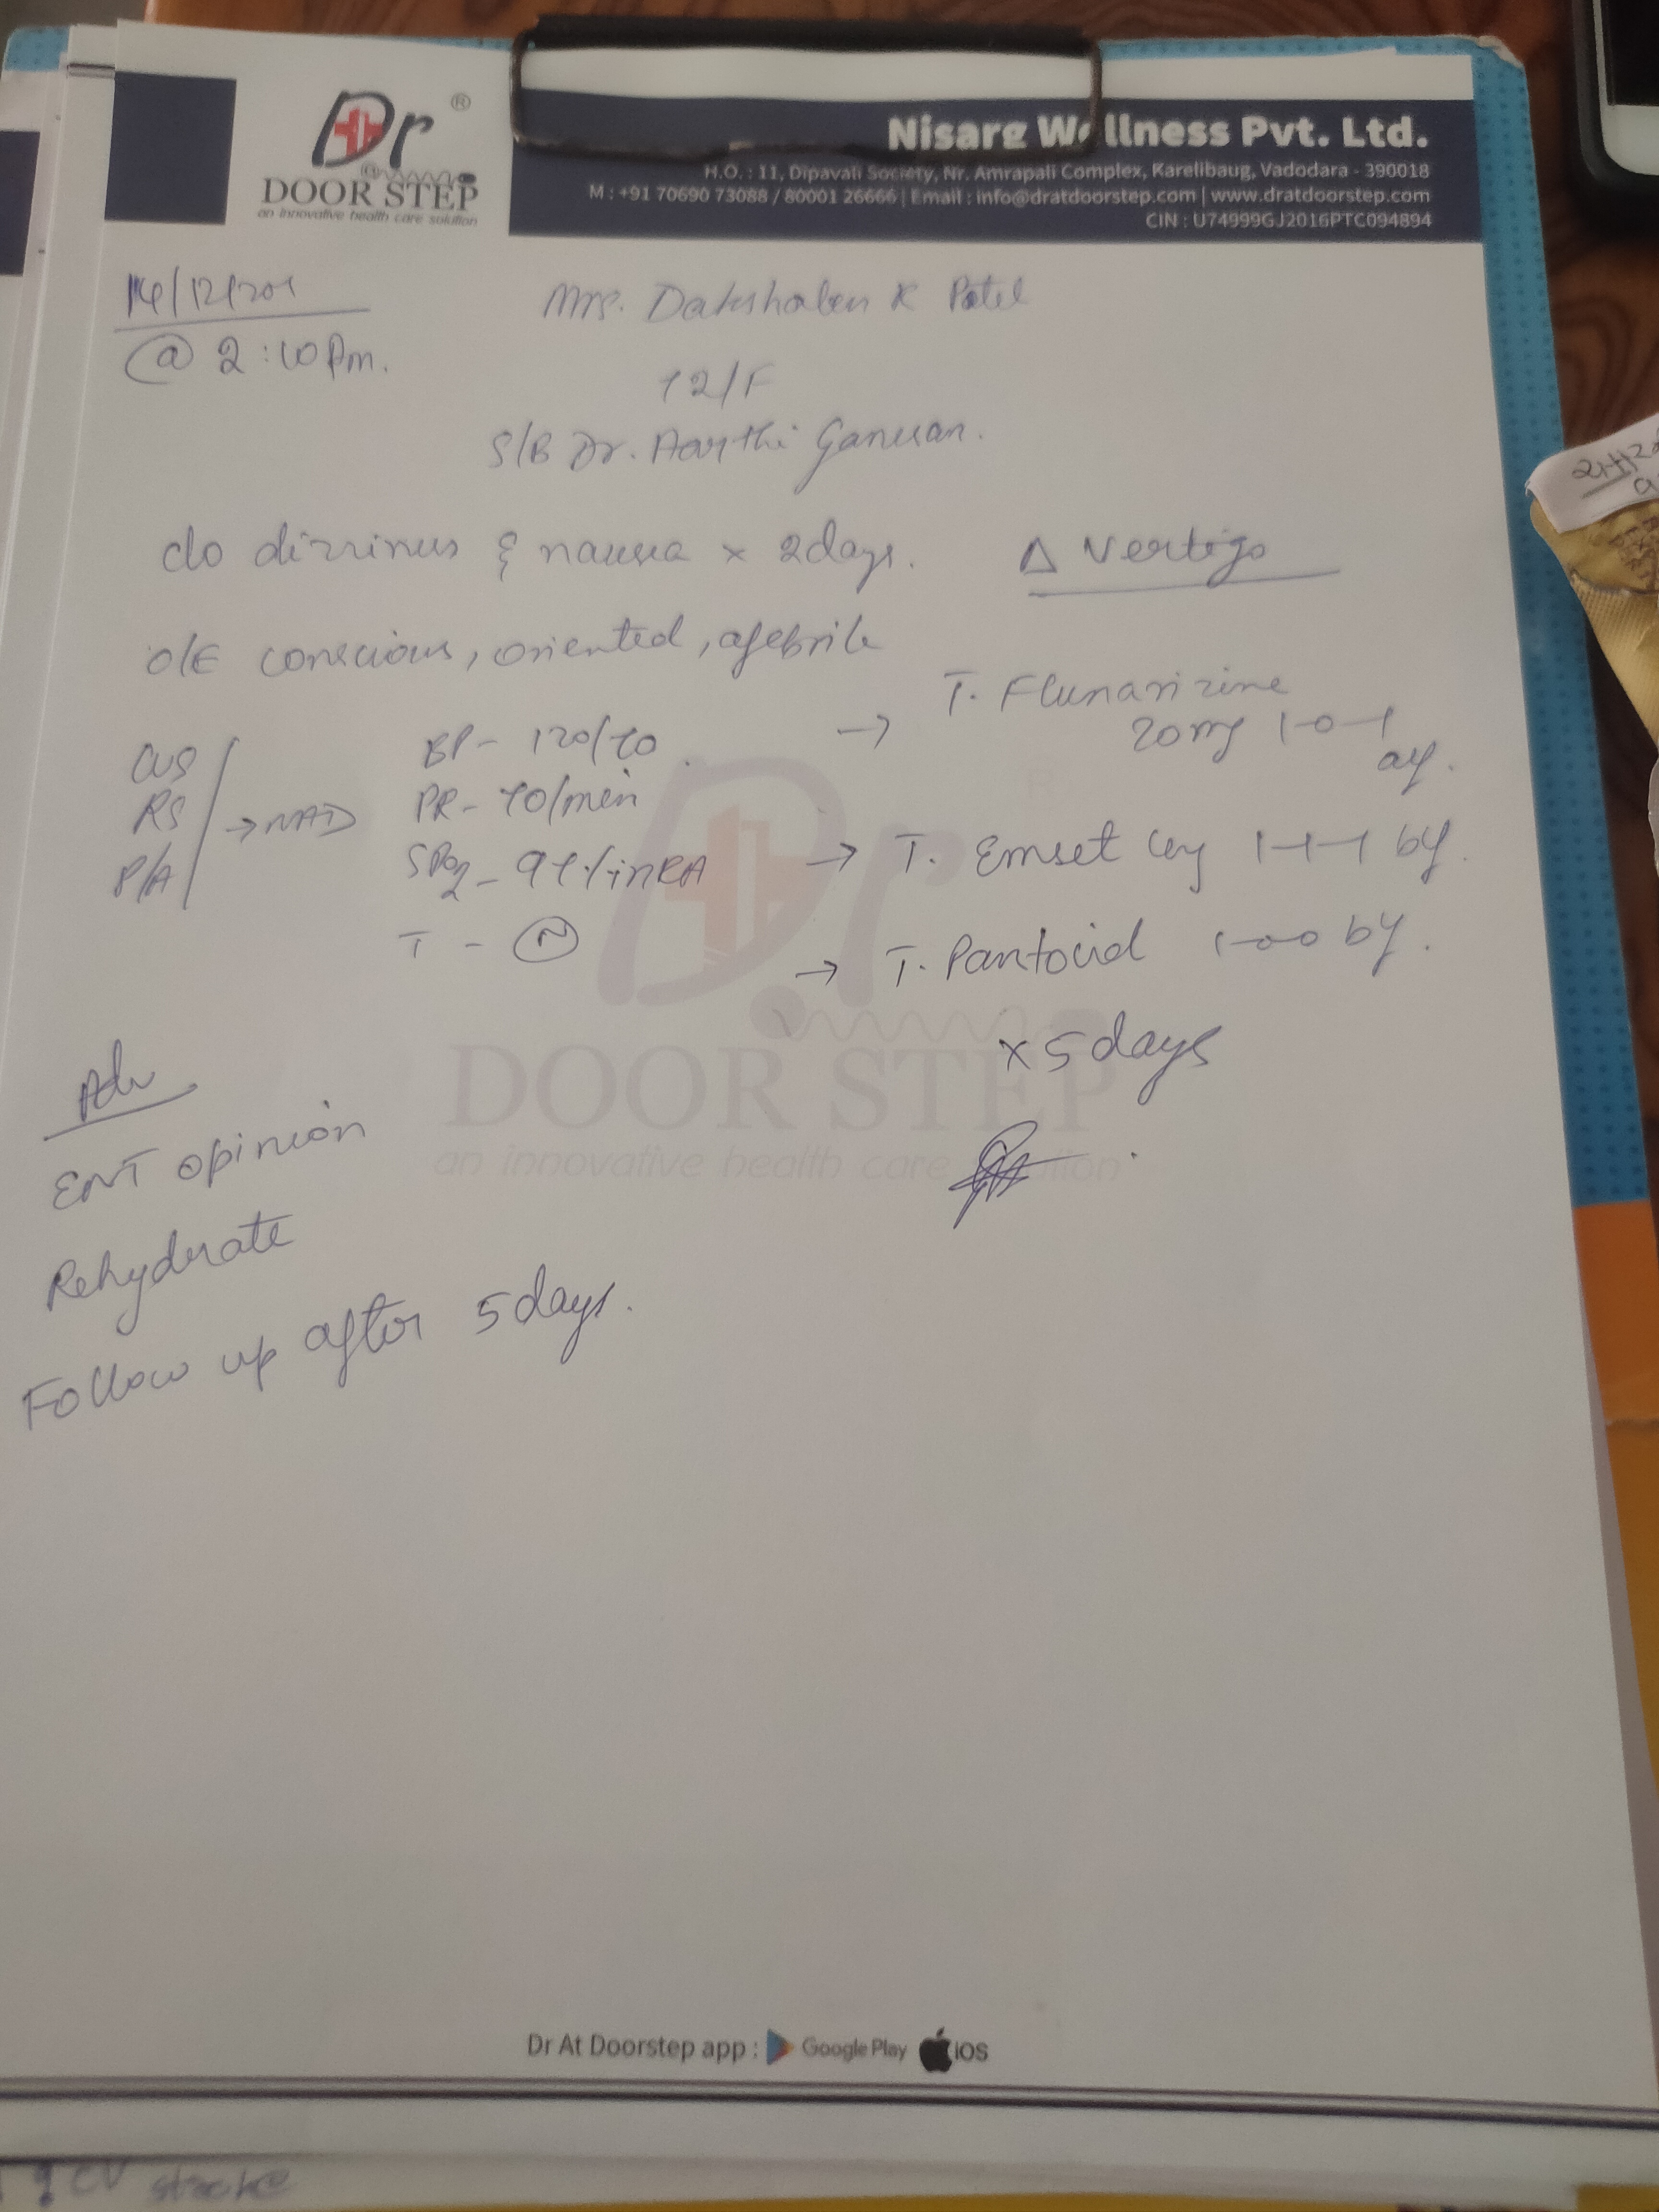 Dr ®
@
DOOR STEP
an innovative health care solution
Nisarg Wellness Pvt. Ltd.
H.O. : 11, Dipavali Society, Nr. Amrapali Complex, Karelibaug, Vadodara - 390018
M : +91 70690 73088 / 80001 26666 | Email : info@dratdoorstep.com | www.dratdoorstep.com
CIN : U74999GJ2016PTC094894
Mrs. Dakshaben K Patel
@ 2:10 Pm.
72/F
S/B Dr. Aarthi Ganesan.
c/o dizziness & nausea x 2days.
Δ Vertigo
O/E conscious, oriented, afebrile
CVS
RS
P/A
→ NAD
BP - 120/70
PR - 70/min
SPO2 - 97% in RA
T - N
→ T. Flunarizine
20mg 1-0-1
→ T. Emset 1-1-1 bf.
→ T. Pantocid 1-0-0 bf.
x 5 days
Adv
ENT opinion
Rehydrate
Follow up after 5 days.
DOOR STEP
an innovative health care solution
Dr At Doorstep app : Google Play iOS
CV stroke